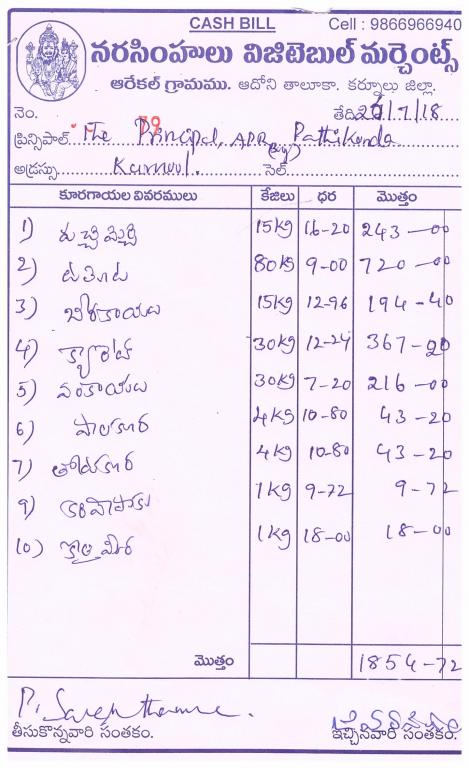 CASH BILL Cell : 9866966940
నరసింహలు విజిటెబుల్ మర్చెంట్స్
ఆరేకల్ గ్రామము. ఆదోని తాలూకా. కర్నూలు జిల్లా.
నెం. 79 తేది /7/18
ప్రిన్సిపాల్ The Principal, APR Pathikonda
అడ్రస్సు Kurnool. సెల్
కూరగాయల వివరములు కేజీలు ధర మొత్తం
1) పచ్చిమిర్చి 15kg 16-20 243-00
2) టమోట 80kg 9-00 720-00
3) బీరకాయలు 15kg 12-96 194-40
4) క్యారెట్ 30kg 12-24 367-20
5) వంకాయలు 30kg 7-20 216-00
6) పాలకూర 4kg 10-80 43-20
7) తోటకూర 4kg 10-80 43-20
9) కరివేపాకు 1kg 9-72 9-72
10) కొత్తిమీర 1kg 18-00 18-00
మొత్తం 1854-72
తీసుకొన్నవారి సంతకం. ఇచ్చినవారి సంతకం.